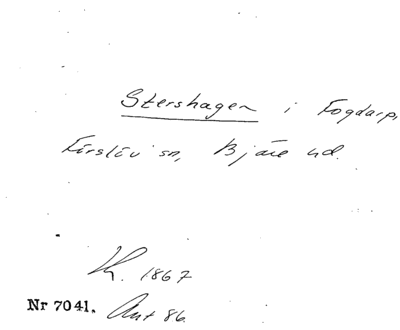 Stershagen i Fogdarp,
Förslöv sn, Bjäre hd.
K. 1867
Nr 7041. Ant 86.